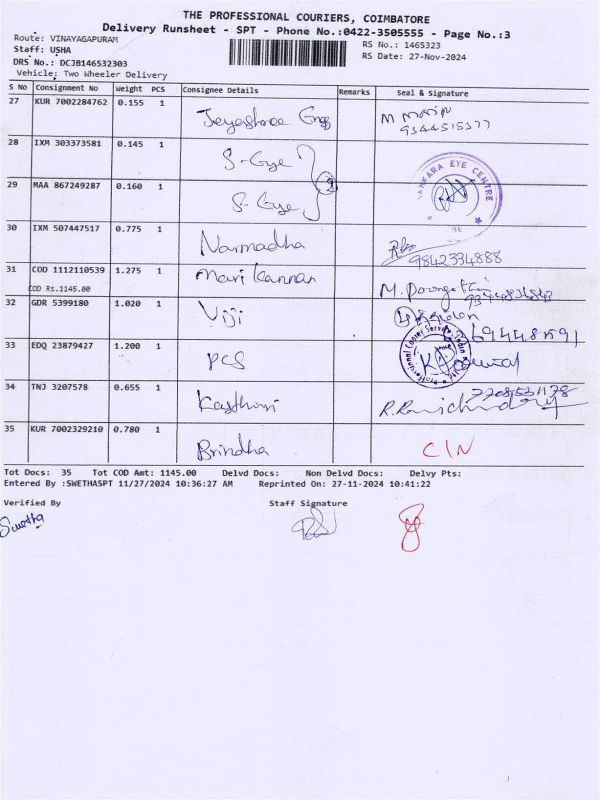 THE PROFESSIONAL COURIERS, COIMBATORE
Delivery Runsheet - SPT - Phone No.:0422-3505555 - Page No.:3
Route: VINAYAGAPURAM
RS No.: 1465323
Staff: USHA
RS Date: 27-Nov-2024
DRS No.: DCJB146532303
Vehicle: Two Wheeler Delivery
S No Consignment No Weight PCS Consignee Details Remarks Seal & Signature
27 KUR 7002284762 0.155 1 Jeyashree Engg
9344515377
28 IXM 303373581 0.145 1 S-Eye
29 MAA 867249287 0.160 1 S-Eye
2
SANKARA EYE CENTRE
30 IXM 507447517 0.775 1 Narmadha
9842334888
31 COD 1112110539 1.275 1 Mari Kannan
COD Rs.1145.00
32 GDR 5399180 1.020 1 Viji
33 EDQ 23879427 1.200 1 PCS
34 TNJ 3207578 0.655 1 Kasthuri
35 KUR 7002329210 0.780 1 Brindha C/N
Tot Docs: 35 Tot COD Amt: 1145.00 Delvd Docs: Non Delvd Docs: Delvy Pts:
Entered By :SWETHASPT 11/27/2024 10:36:27 AM Reprinted On: 27-11-2024 10:41:22
Verified By Staff Signature
Swetha